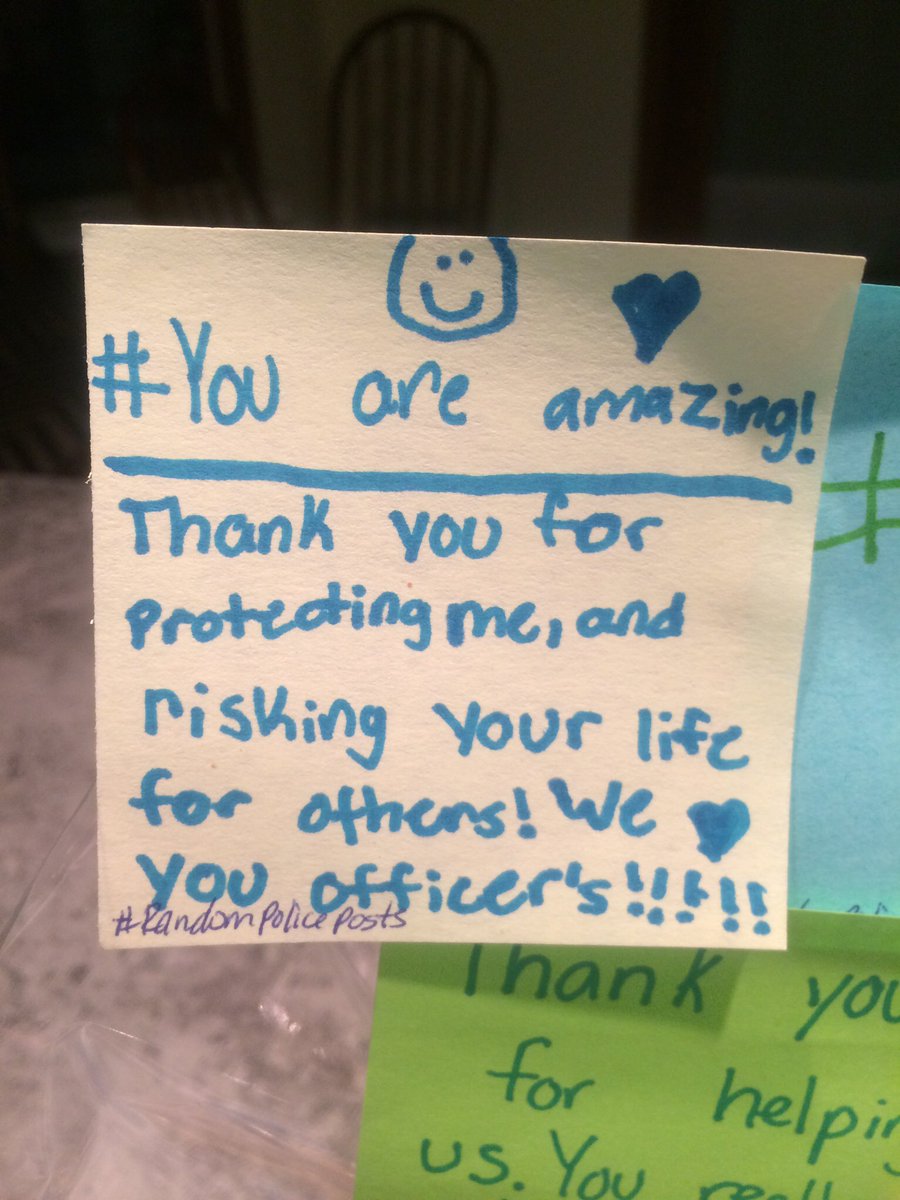 #You are amazing!
Thank you for
protecting me, and
risking your life
for others! We ♥
you officer's!!!!!
#RandomPolicePosts
#
Thank you
for
us. You